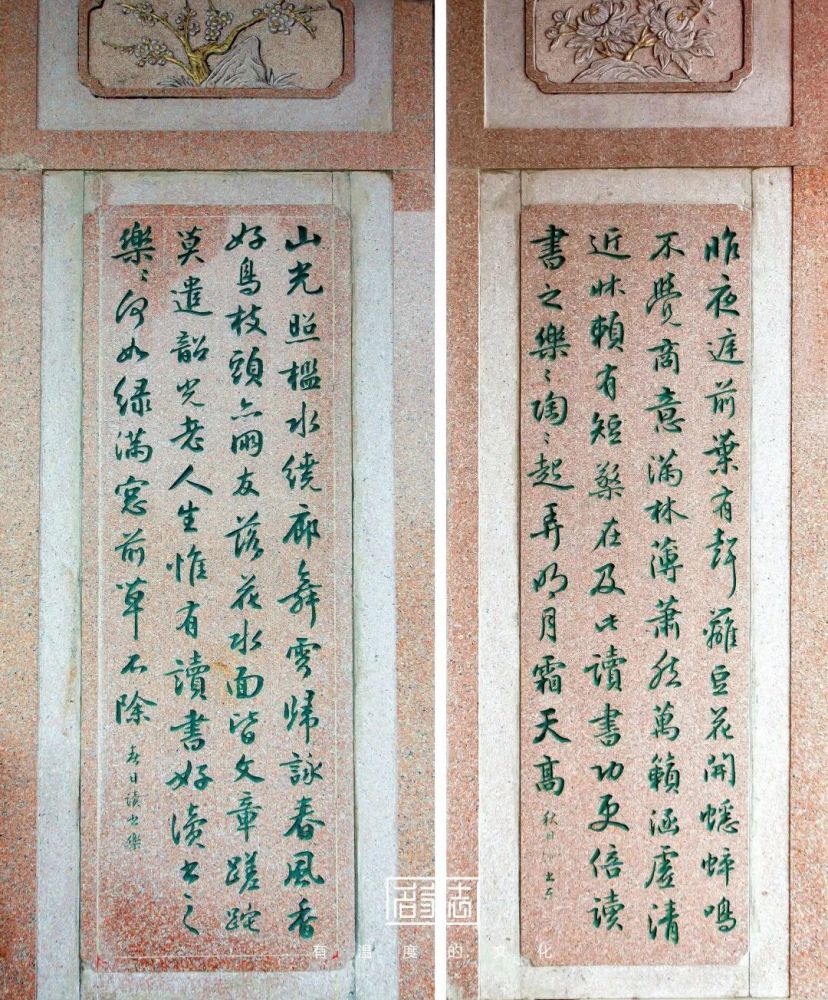 山光照檻水繞廊舞雩歸詠春風香
好鳥枝頭亦朋友落花水面皆文章蹉跎
莫遣韶光老人生惟有讀書好讀書之
樂〻何如綠滿窓前草不除
春日讀書樂
昨夜庭前葉有聲蘺豆花開蟋蟀鳴
不覺商意滿林薄蕭然萬籟涵虛清
近牀賴有短檠在及此讀書功更倍讀
書之樂〻陶〻起弄明月霜天高
秋日讀書樂
有温度的文化